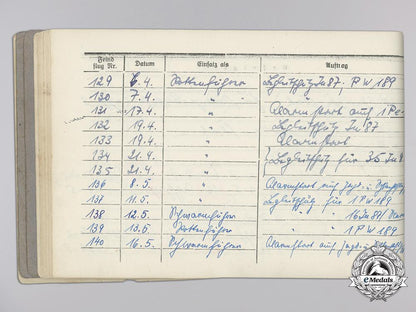 Feind flug Nr. Datum Einsatz als Auftrag
129 6.4. Rottenführer Begleitschutz Ju 87, FW 189
130 7.4. " "
131 17.4. " Alarmstart auf 1 Pe-
132 19.4. " Begleitschutz Ju 87
133 19.4. " Alarmstart
134 21.4. " Begleitschutz für 35 Ju
135 21.4. "
136 8.5. " Alarmstart auf Jagd- u.
137 11.5. " Begleitschutz für 1 FW 189
138 12.5. Schwarmführer " " 16 Ju 87
139 13.5. Rottenführer " 1 FW 189
140 16.5. Schwarmführer Alarmstart auf Jagd- u.
eMedals